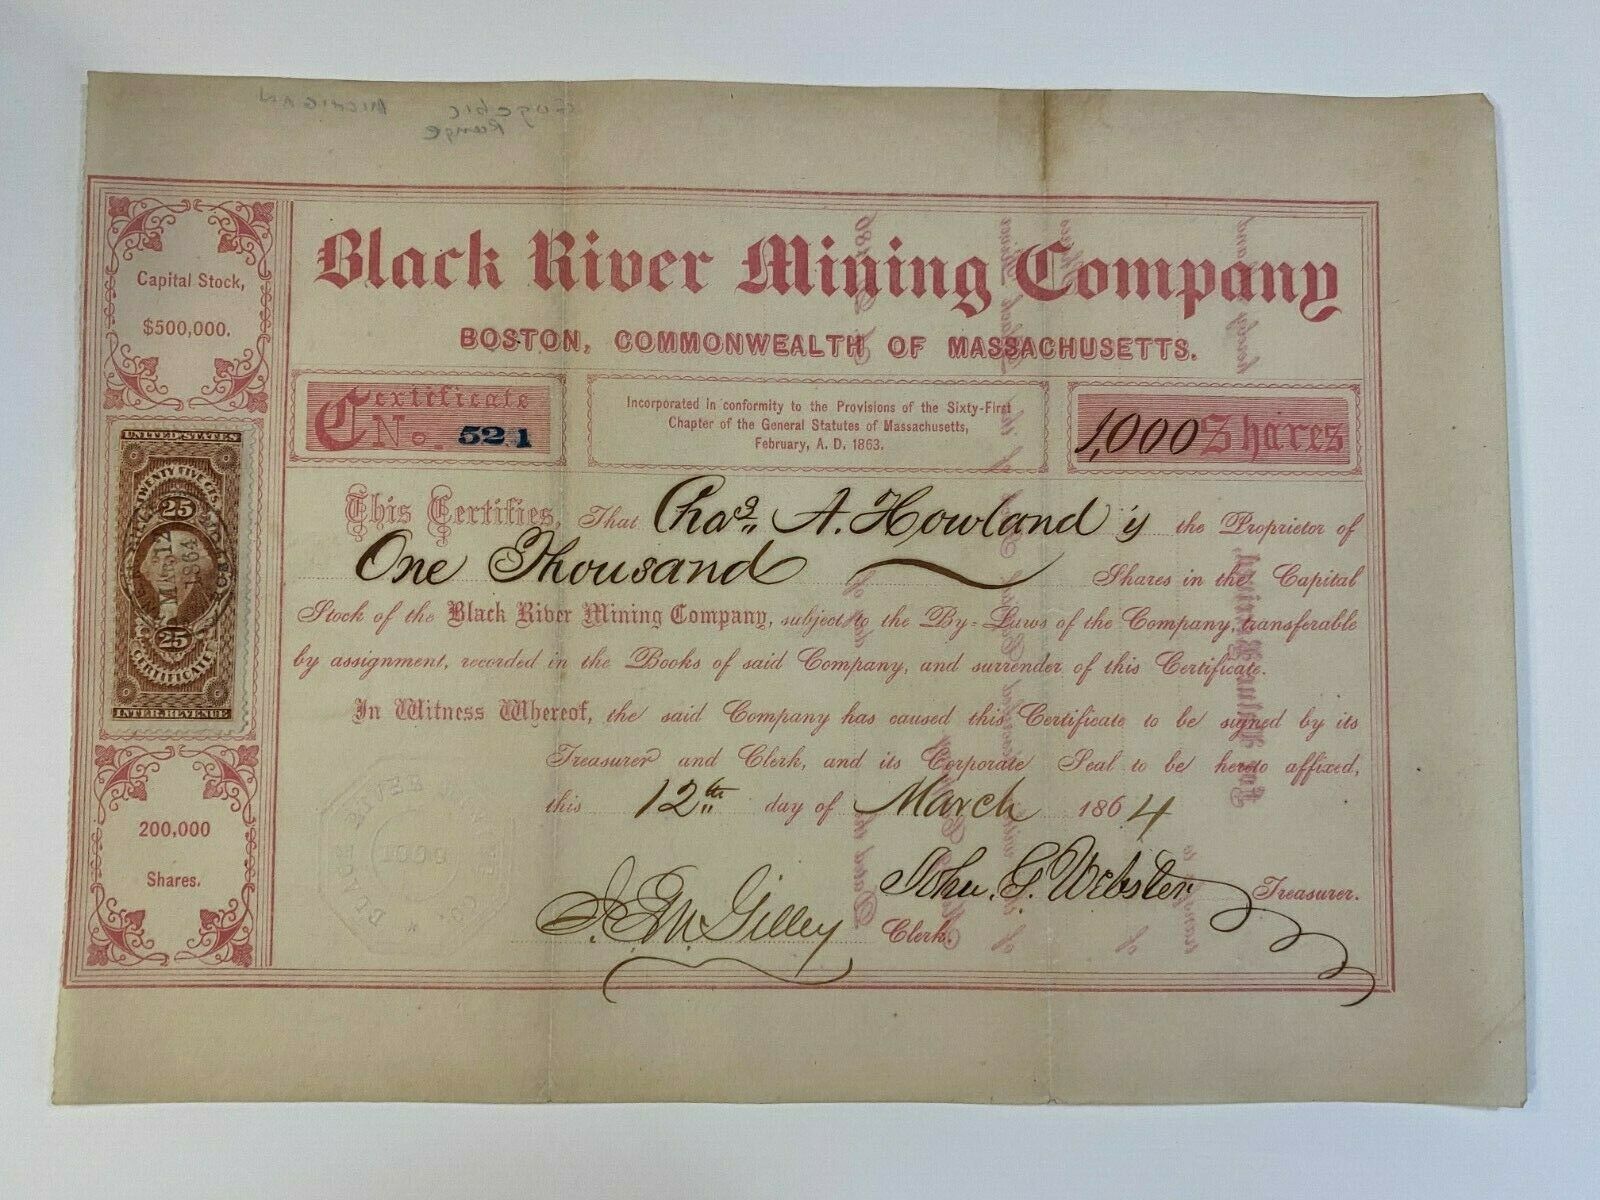 MICHIGAN
Range
Black River Mining Company
BOSTON, COMMONWEALTH OF MASSACHUSETTS.
Capital Stock,
$500,000.
Certificate
No. 521
Incorporated in conformity to the Provisions of the Sixty-First
Chapter of the General Statutes of Massachusetts,
February, A. D. 1863.
1,000 Shares
UNITED STATES
TWENTY FIVE CTS.
25
MAR 12
1864
25
CERTIFICATE
INTER. REVENUE
This Certifies, That Chas. A. Howland is the Proprietor of
One Thousand Shares in the Capital
Stock of the Black River Mining Company, subject to the By-Laws of the Company, transferable
by assignment, recorded in the Books of said Company, and surrender of this Certificate.
In Witness Whereof, the said Company has caused this Certificate to be signed by its
Treasurer and Clerk, and its Corporate Seal to be hereto affixed,
this 12th day of March 1864
200,000
Shares.
BLACK RIVER MINING CO.
John G. Webster Treasurer.
Gilley Clerk.